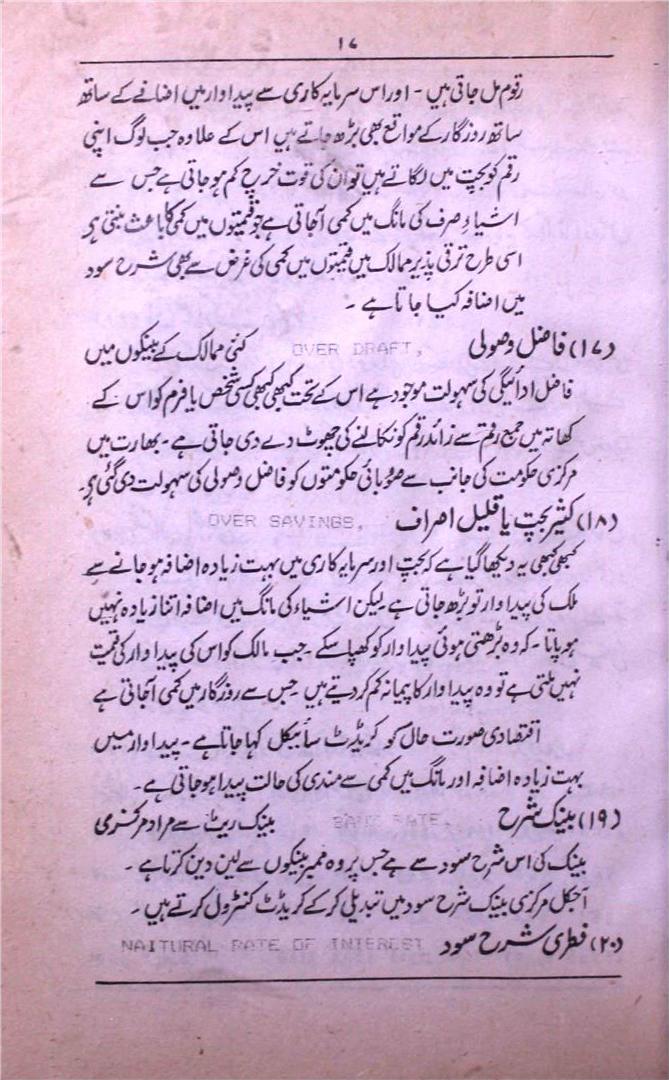 ۱۷
رقوم مل جاتی ہیں ۔ اور اس سرمایہ کاری سے پیداوار میں اضافے کے ساتھ
ساتھ روزگار کے مواقع بھی بڑھ جاتے ہیں اس کے علاوہ جب لوگ اپنی
رقم کو بچت میں لگاتے ہیں تو ان کی قوت خرچ کم ہو جاتی ہے جس سے
اشیاءِ صرف کی مانگ میں کمی آجاتی ہے جو قیمتوں میں کمی کا باعث بنتی ہے
اسی طرح ترقی پذیر ممالک میں قیمتوں میں کمی کی غرض سے بھی شرح سود
میں اضافہ کیا جاتا ہے ۔
(۱۷) فاضل وصولی OVER DRAFT, کئی ممالک کے بینکوں میں
فاضل ادائیگی کی سہولت موجود ہے اس کے تحت کبھی کبھی کسی شخص یا فرم کو اس کے
کھاتہ میں جمع رقم سے زائد رقم کو نکالنے کی چھوٹ دے دی جاتی ہے ۔ بھارت میں
مرکزی حکومت کی جانب سے صوبائی حکومتوں کو فاضل وصولی کی سہولت دی گئی ہے۔
(۱۸) کثیر بچت یا قلیل اصراف OVER SAVINGS,
کبھی کبھی یہ دیکھا گیا ہے کہ بچت اور سرمایہ کاری میں بہت زیادہ اضافہ ہو جانے سے
ملک کی پیداوار تو بڑھ جاتی ہے لیکن اشیاء کی مانگ میں اضافہ اتنا زیادہ نہیں
ہو پاتا ۔ کہ وہ بڑھتی ہوئی پیداوار کو کھپا سکے ۔ جب مالک کو اس کی پیداوار کی قیمت
نہیں ملتی ہے تو وہ پیداوار کا پیمانہ کم کر دیتے ہیں جس سے روزگار میں کمی آجاتی ہے
اقتصادی صورت حال کو کریڈٹ سائیکل کہا جاتا ہے ۔ پیداوار میں
بہت زیادہ اضافہ اور مانگ میں کمی سے مندی کی حالت پیدا ہو جاتی ہے ۔
(۱۹) بینک شرح BANK RATE. بینک ریٹ سے مراد مرکزی
بینک کی اس شرح سود سے ہے جس پر وہ ممبر بینکوں سے لین دین کرتا ہے ۔
آجکل مرکزی بینک شرح سود میں تبدیلی کر کے کریڈٹ کنٹرول کرتے ہیں ۔
(۲۰) فطری شرح سود NAITURAL RATE OF INTEREST